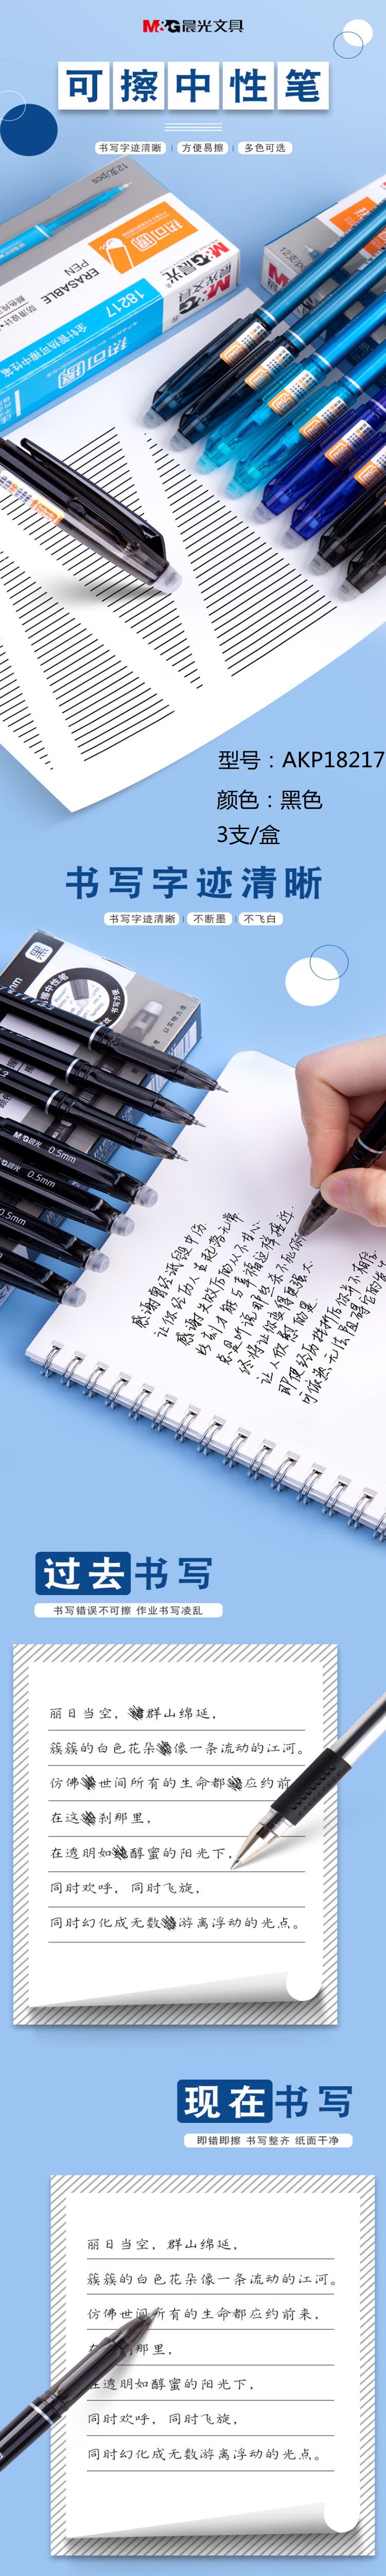 M&G晨光文具
可擦中性笔
书写字迹清晰 方便易擦 多色可选
12支/pcs
ERASABLE
PEN
热可擦
18217
全针管热可擦中性笔
M&G晨光
型号：AKP18217
颜色：黑色
3支/盒
书写字迹清晰
书写字迹清晰 不断墨 不飞白
黑
M&G晨光 0.5mm
0.5mm
感谢曾经试题中伤
让你经历人生起落无常
感谢失败后的不甘心
终将让你变得更强大
让人欣慰的是
过去书写
书写错误不可擦 作业书写凌乱
丽日当空，群山绵延，
簇簇的白色花朵像一条流动的江河。
仿佛世间所有的生命都应约前
在这刹那里，
在透明如醇蜜的阳光下，
同时欢呼，同时飞旋，
同时幻化成无数游离浮动的光点。
现在书写
即错即擦 书写整齐 纸面干净
丽日当空，群山绵延，
簇簇的白色花朵像一条流动的江河。
仿佛世间所有的生命都应约前来，
那里，
在透明如醇蜜的阳光下，
同时欢呼，同时飞旋，
同时幻化成无数游离浮动的光点。